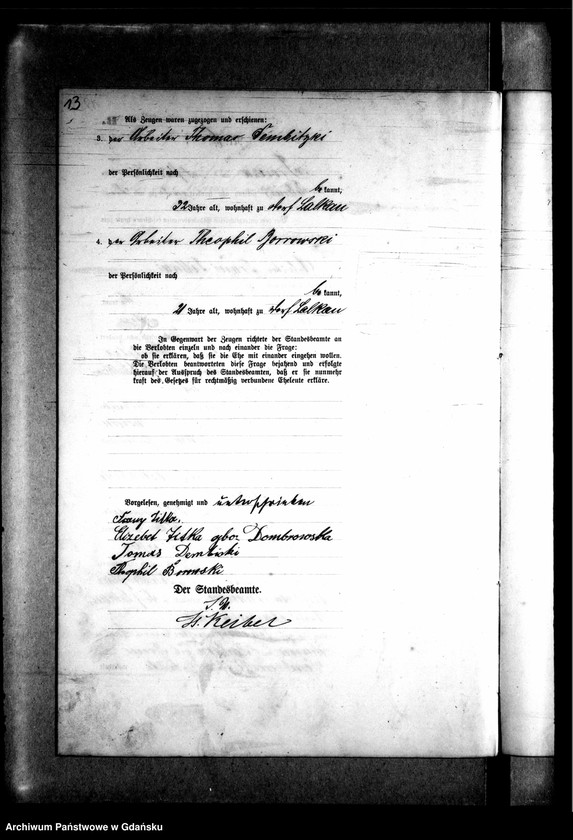 13
Als Zeugen waren zugezogen und erschienen:
3. der Arbeiter Thomas Dembitzki
der Persönlichkeit nach
be kannt,
32 Jahre alt, wohnhaft zu Dorf Lalkau
4. der Arbeiter Theophil Borrowski
der Persönlichkeit nach
be kannt,
21 Jahre alt, wohnhaft zu Dorf Lalkau
In Gegenwart der Zeugen richtete der Standesbeamte an
die Verlobten einzeln und nach einander die Frage:
ob sie erklären, daß sie die Ehe mit einander eingehen wollen.
Die Verlobten beantworteten diese Frage bejahend und erfolgte
hierauf der Ausspruch des Standesbeamten, daß er sie nunmehr
kraft des Gesetzes für rechtmäßig verbundene Eheleute erkläre.
Vorgelesen, genehmigt und unterschrieben
Franz
Elizebet gebor Dombrowska
Tomas Dembiski
Theophil Borowski
Der Standesbeamte.
Keiber
Archiwum Państwowe w Gdańsku